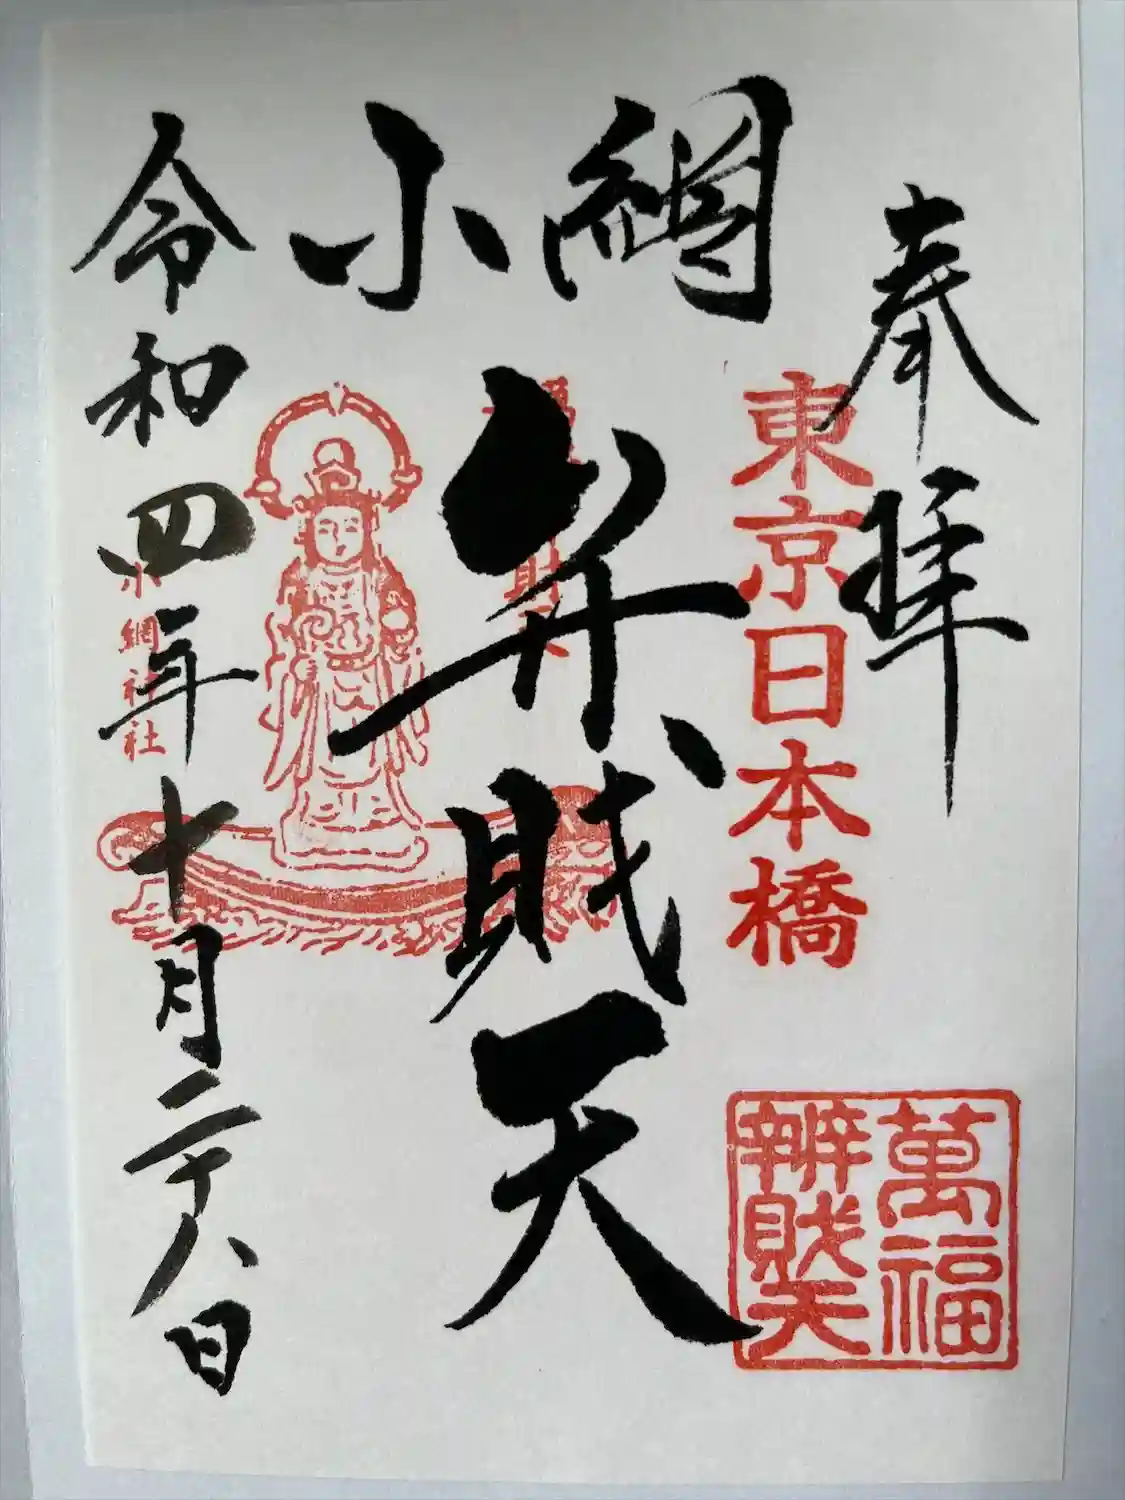 奉拝
東京日本橋
萬福
辨財天
小網
弁財天
小網神社
令和四年十月二十八日